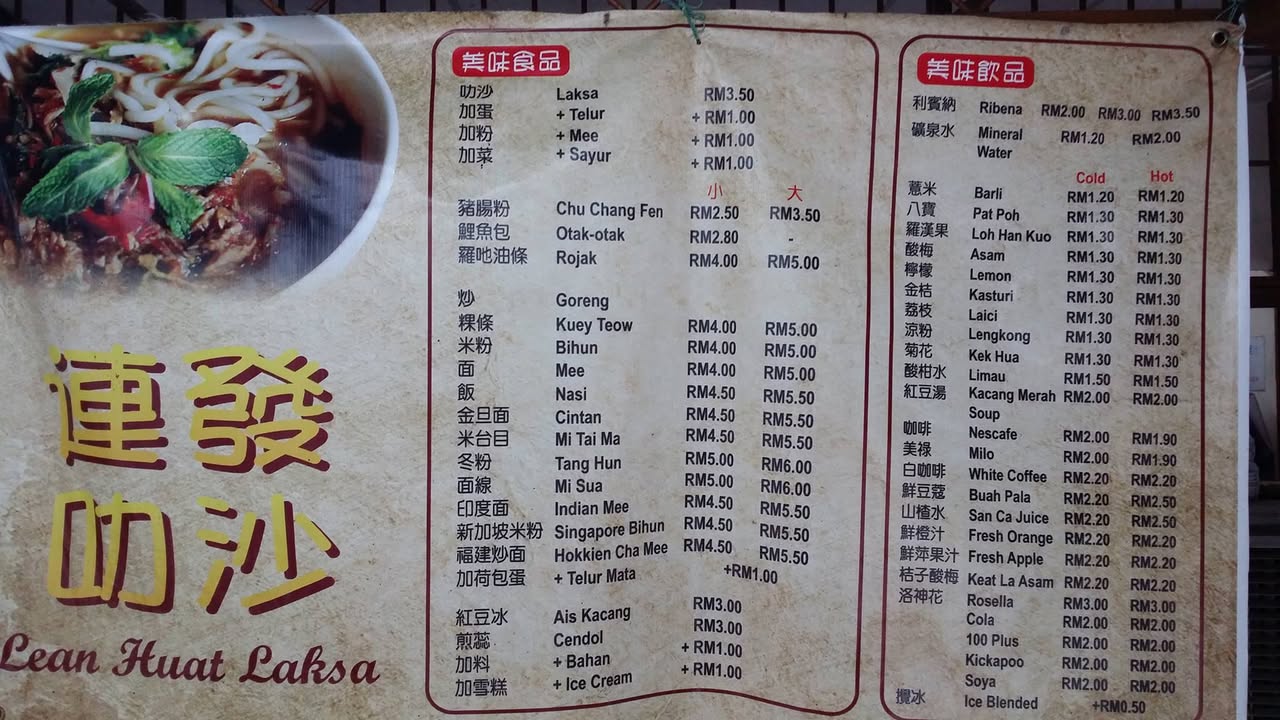 連發
叻沙
Lean Huat Laksa
美味食品
叻沙 Laksa RM3.50
加蛋 + Telur + RM1.00
加粉 + Mee + RM1.00
加菜 + Sayur + RM1.00
小 大
豬腸粉 Chu Chang Fen RM2.50 RM3.50
鯉魚包 Otak-otak RM2.80 -
羅吔油條 Rojak RM4.00 RM5.00
炒 Goreng
粿條 Kuey Teow RM4.00 RM5.00
米粉 Bihun RM4.00 RM5.00
面 Mee RM4.00 RM5.00
飯 Nasi RM4.50 RM5.50
金旦面 Cintan RM4.50 RM5.50
米台目 Mi Tai Ma RM4.50 RM5.50
冬粉 Tang Hun RM5.00 RM6.00
面線 Mi Sua RM5.00 RM6.00
印度面 Indian Mee RM4.50 RM5.50
新加坡米粉 Singapore Bihun RM4.50 RM5.50
福建炒面 Hokkien Cha Mee RM4.50 RM5.50
加荷包蛋 + Telur Mata +RM1.00
紅豆冰 Ais Kacang RM3.00
煎蕊 Cendol RM3.00
加料 + Bahan + RM1.00
加雪糕 + Ice Cream + RM1.00
美味飲品
利賓納 Ribena RM2.00 RM3.00 RM3.50
礦泉水 Mineral RM1.20 RM2.00
Water
Cold Hot
薏米 Barli RM1.20 RM1.20
八寶 Pat Poh RM1.30 RM1.30
羅漢果 Loh Han Kuo RM1.30 RM1.30
酸梅 Asam RM1.30 RM1.30
檸檬 Lemon RM1.30 RM1.30
金桔 Kasturi RM1.30 RM1.30
荔枝 Laici RM1.30 RM1.30
涼粉 Lengkong RM1.30 RM1.30
菊花 Kek Hua RM1.30 RM1.30
酸柑水 Limau RM1.50 RM1.50
紅豆湯 Kacang Merah RM2.00 RM2.00
Soup
咖啡 Nescafe RM2.00 RM1.90
美祿 Milo RM2.00 RM1.90
白咖啡 White Coffee RM2.20 RM2.20
鮮豆蔻 Buah Pala RM2.20 RM2.50
山楂水 San Ca Juice RM2.20 RM2.50
鮮橙汁 Fresh Orange RM2.20 RM2.20
鮮萍果汁 Fresh Apple RM2.20 RM2.20
桔子酸梅 Keat La Asam RM2.20 RM2.20
洛神花 Rosella RM3.00 RM3.00
Cola RM2.00 RM2.00
100 Plus RM2.00 RM2.00
Kickapoo RM2.00 RM2.00
Soya RM2.00 RM2.00
攪冰 Ice Blended +RM0.50